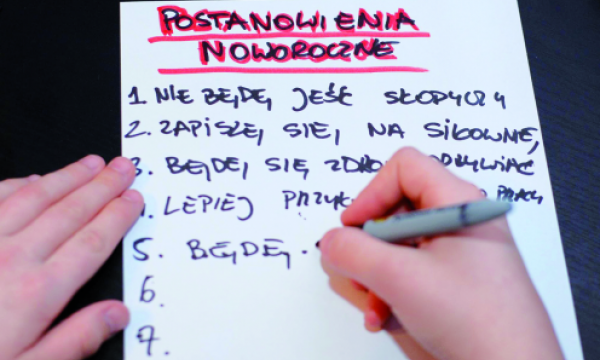 POSTANOWIENIA
NOWOROCZNE
1. NIE BĘDĘ JEŚĆ SŁODYCZY
2. ZAPISZĘ SIĘ NA SIŁOWNIĘ,
3. BĘDĘ SIĘ
4. LEPIEJ PRACY
5. BĘDĘ
6.
7.